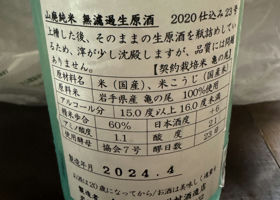 山廃純米 無濾過生原酒 2020仕込み23号
上槽した後、そのままの生原酒を瓶詰めしてい
るため、滓が少し沈殿しますが、品質には問題
ありません。【契約栽培米 亀の尾】
原材料名 米(国産)、米こうじ(国産米)
原料米 岩手県産 亀の尾 100%使用
アルコール分 15.0度以上16.0度未満
精米歩合 60% 日本酒度
アミノ酸度 1.1 酸度
使用酵母 協会7号 醪日数
製造年月 2024.4
お酒は20歳になってから/お酒は美味しく適量を